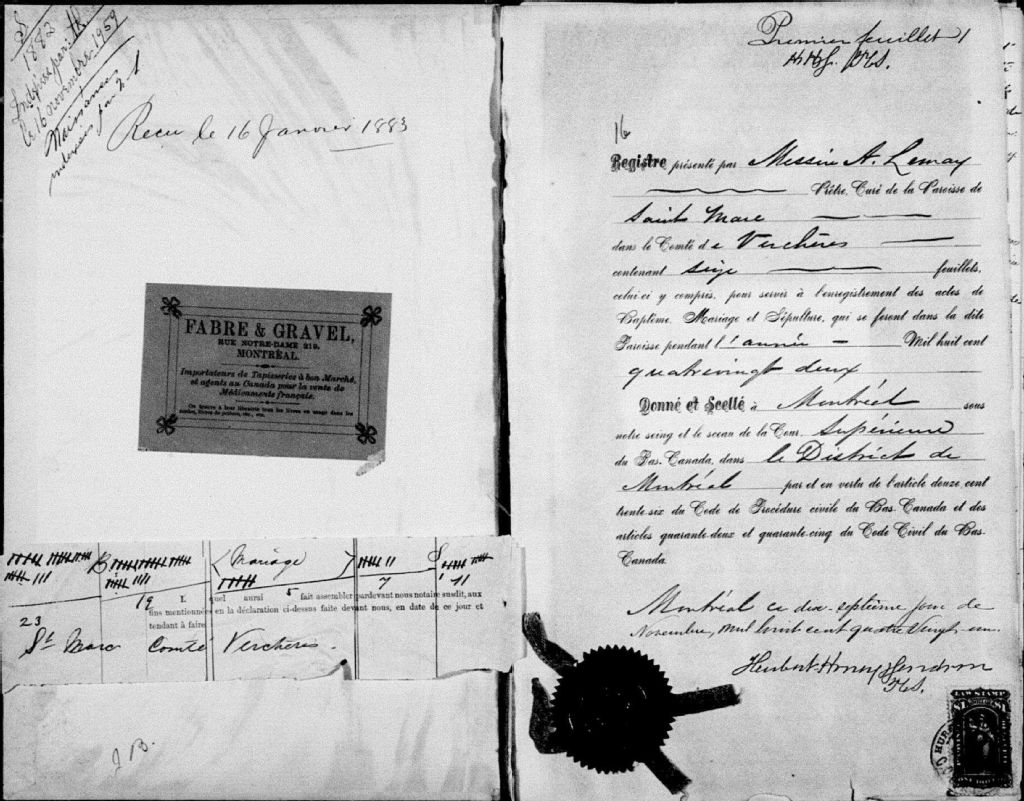 S
1882
Indexé par: Th
le 16 novembre 1959
Naissances
Recu le 16 Janvier 1883
FABRE & GRAVEL,
RUE NOTRE-DAME 219.
MONTRÉAL.
Importateurs de Tapisseries à bon Marché,
et agents au Canada pour la vente de
Médicaments français.
On trouve à leur librairie tous les livres en usage dans les
B (Mariage) S
7 11
19 5
I quel aurai fait assembler pardevant nous notaire susdit, aux
fins mentionnées en la déclaration ci-dessus faite devant nous, en date de ce jour et
tendant à faire
23
St Marc Comté Verchères.
J B.
Premier feuillet 1
HHG. PHS.
16
Registre présenté par Messire A. Lemay
Prêtre, Curé de la Paroisse de
Saint Marc
dans le Comté de Verchères
contenant seize feuillets,
celui-ci y compris, pour servir à l'enregistrement des actes de
Baptême, Mariage et Sépulture, qui se feront dans la dite
Paroisse pendant l'année Mil huit cent
quatrevingt deux
Donné et Scellé à Montréal sous
notre seing et le sceau de la Cour Supérieure
du Bas-Canada, dans le District de
Montréal par et en vertu de l'article douze, cent
trente-six du Code de Procédure civile du Bas-Canada et des
articles quarante-deux et quarante-cinq du Code Civil du Bas-
Canada.
Montréal ce dix-septième jour de
Novembre, mil huit cent quatre vingt-un.
LAW STAMP